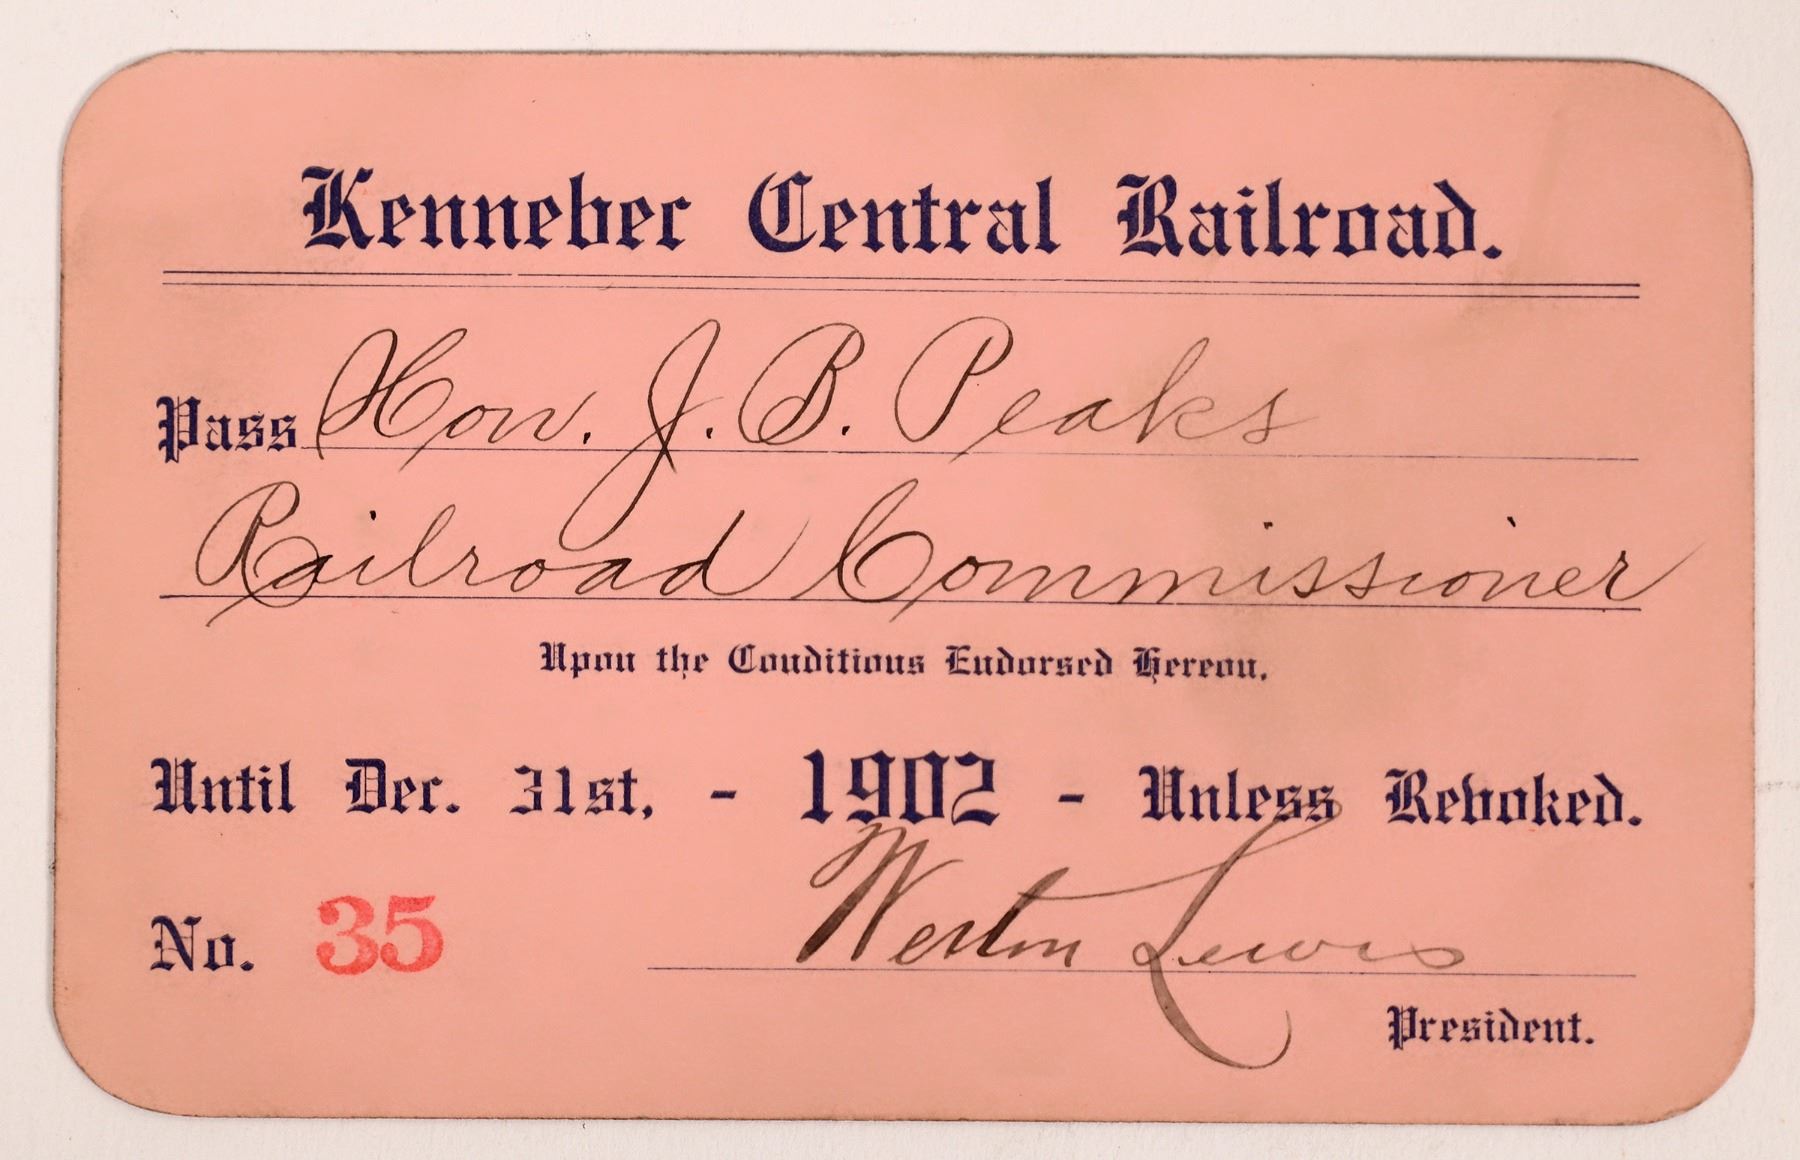 Kennebec Central Railroad.
Pass Hon. J. B. Peaks
Railroad Commissioner
Upon the Conditions Endorsed Hereon.
Until Dec. 31st, - 1902 - Unless Revoked.
No. 35 Weston Lewis
President.